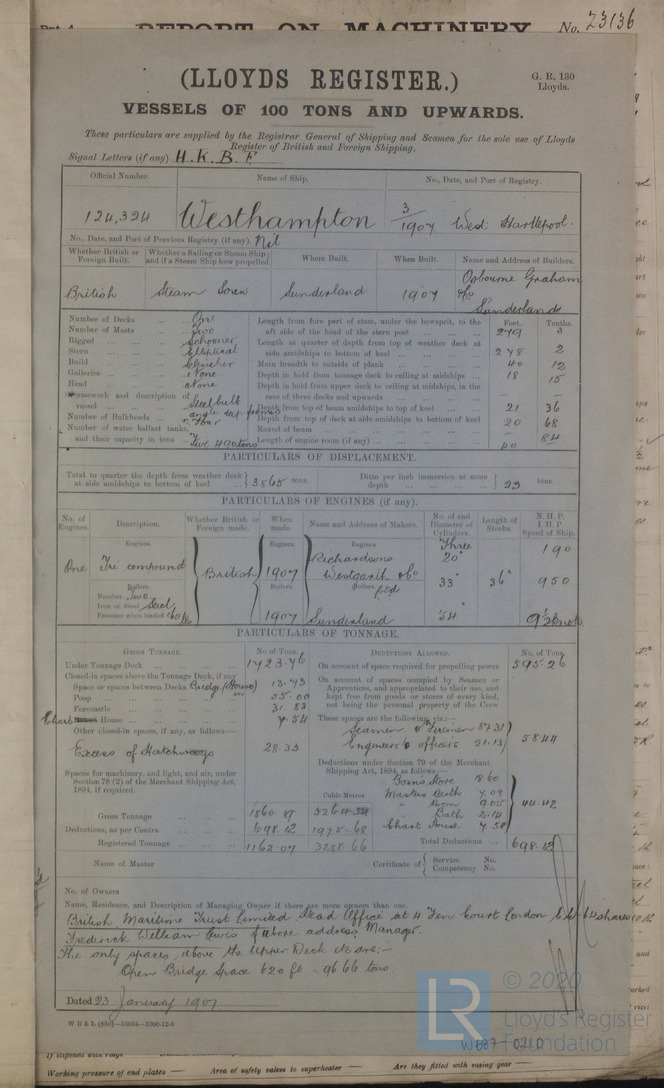 REPORT ON MACHINERY No. 23136
(LLOYDS REGISTER.)
G. R. 130
Lloyds.
VESSELS OF 100 TONS AND UPWARDS.
These particulars are supplied by the Registrar General of Shipping and Seamen for the sole use of Lloyds
Register of British and Foreign Shipping.
Signal Letters (if any) H.K.B.F.
Official Number. Name of Ship. No., Date, and Port of Registry.
124,324 Westhampton 3/1907 West Hartlepool.
No., Date, and Port of Previous Registry (if any). Nil
Whether British or Foreign Built. Whether a Sailing or Steam Ship; and if a Steam Ship how propelled Where Built. When Built. Name and Address of Builders.
British Steam Screw Sunderland 1907 Osbourne Graham & Co Sunderland
Number of Decks One
Number of Masts Two
Rigged Schooner
Stern Elliptical
Build Clincher
Galleries None
Head None
Framework and description of vessel Steel built
Number of Bulkheads Four
Number of water ballast tanks, and their capacity in tons Five 490 tons
Feet. Tenths.
Length from fore part of stem, under the bowsprit, to the aft side of the head of the stern post 279 3
Length at quarter of depth from top of weather deck at side amidships to bottom of keel 278 2
Main breadth to outside of plank 40 12
Depth in hold from tonnage deck to ceiling at midships 18 15
Depth in hold from upper deck to ceiling at midships, in the case of three decks and upwards — —
Depth from top of beam amidships to top of keel 21 36
Depth from top of deck at side amidships to bottom of keel 20 68
Round of beam — 84
Length of engine room (if any) 40
PARTICULARS OF DISPLACEMENT.
Total to quarter the depth from weather deck at side amidships to bottom of keel 3865 tons. Ditto per inch immersion at same depth 23 tons.
PARTICULARS OF ENGINES (if any).
No. of Engines. Description. Whether British or Foreign made. When made. Name and Address of Makers. No. of and Diameter of Cylinders. Length of Stroke. N.H.P. I.H.P. Speed of Ship.
Engines. Engines. Engines Three 190
One Tri compound British 1907 Richardsons Westgarth & Co Ltd 20" 33" 36" 950
Boilers. Boilers. Boilers.
Number Two
Iron or Steel Steel
Pressure when loaded 160 lbs 1907 Sunderland 54" 9½ knots
PARTICULARS OF TONNAGE.
GROSS TONNAGE. No of Tons. DEDUCTIONS ALLOWED. No. of Tons
Under Tonnage Deck 1723.76
Closed-in spaces above the Tonnage Deck, if any
Space or spaces between Decks Bridge (House) 13.73
Poop 55.00
Forecastle 31.83
Chart House 7.54
Other closed-in spaces, if any, as follows:—
Excess of Hatchways 28.33
Spaces for machinery, and light, and air, under Section 78 (2) of the Merchant Shipping Act, 1894, if required.
Cubic Metres
Gross Tonnage 1860.19
Deductions, as per Contra 698.12 1975.68
Registered Tonnage 1162.07 3288.66
On account of space required for propelling power 595.26
On account of spaces occupied by Seamen or Apprentices, and appropriated to their use, and kept free from goods or stores of every kind, not being the personal property of the Crew
These spaces are the following, viz.:—
Seamen & Firemen 37.31
Engineers & officers 21.13 58.44
Deductions under Section 79 of the Merchant Shipping Act, 1894, as follows:—
Bosns Store 18.60
Masters Berth 7.09
" Room 9.05
Bath 2.14
Chart House 7.54 44.42
Total Deductions 698.12
Name of Master Certificate of Service No. Competency No.
No. of Owners
Name, Residence, and Description of Managing Owner if there are more owners than one.
British Maritime Trust Limited Head Office at 4 Fen Court London E.C. 64 shares
Frederick William Lewis of above address Manager.
The only spaces above the Upper Deck etc are:—
Open Bridge Space 620 ft - 96.66 tons.
Dated 23 January 1907
W B & L (83d)—10034—1000-12-6
© 2020
LR
Lloyd's Register
Foundation
W637-0210
Working pressure of end plates — Area of safety valves to superheater — Are they fitted with easing gear —